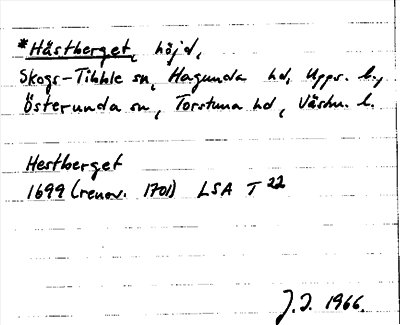 *Hästberget, höjd,
Skogs-Tibble sn, Hagunda hd, Upps. l.,
Österunda sn, Torstuna hd, Västm. l.
Hestberget
1699 (renov. 1701) LSA T 22
J.I. 1966.